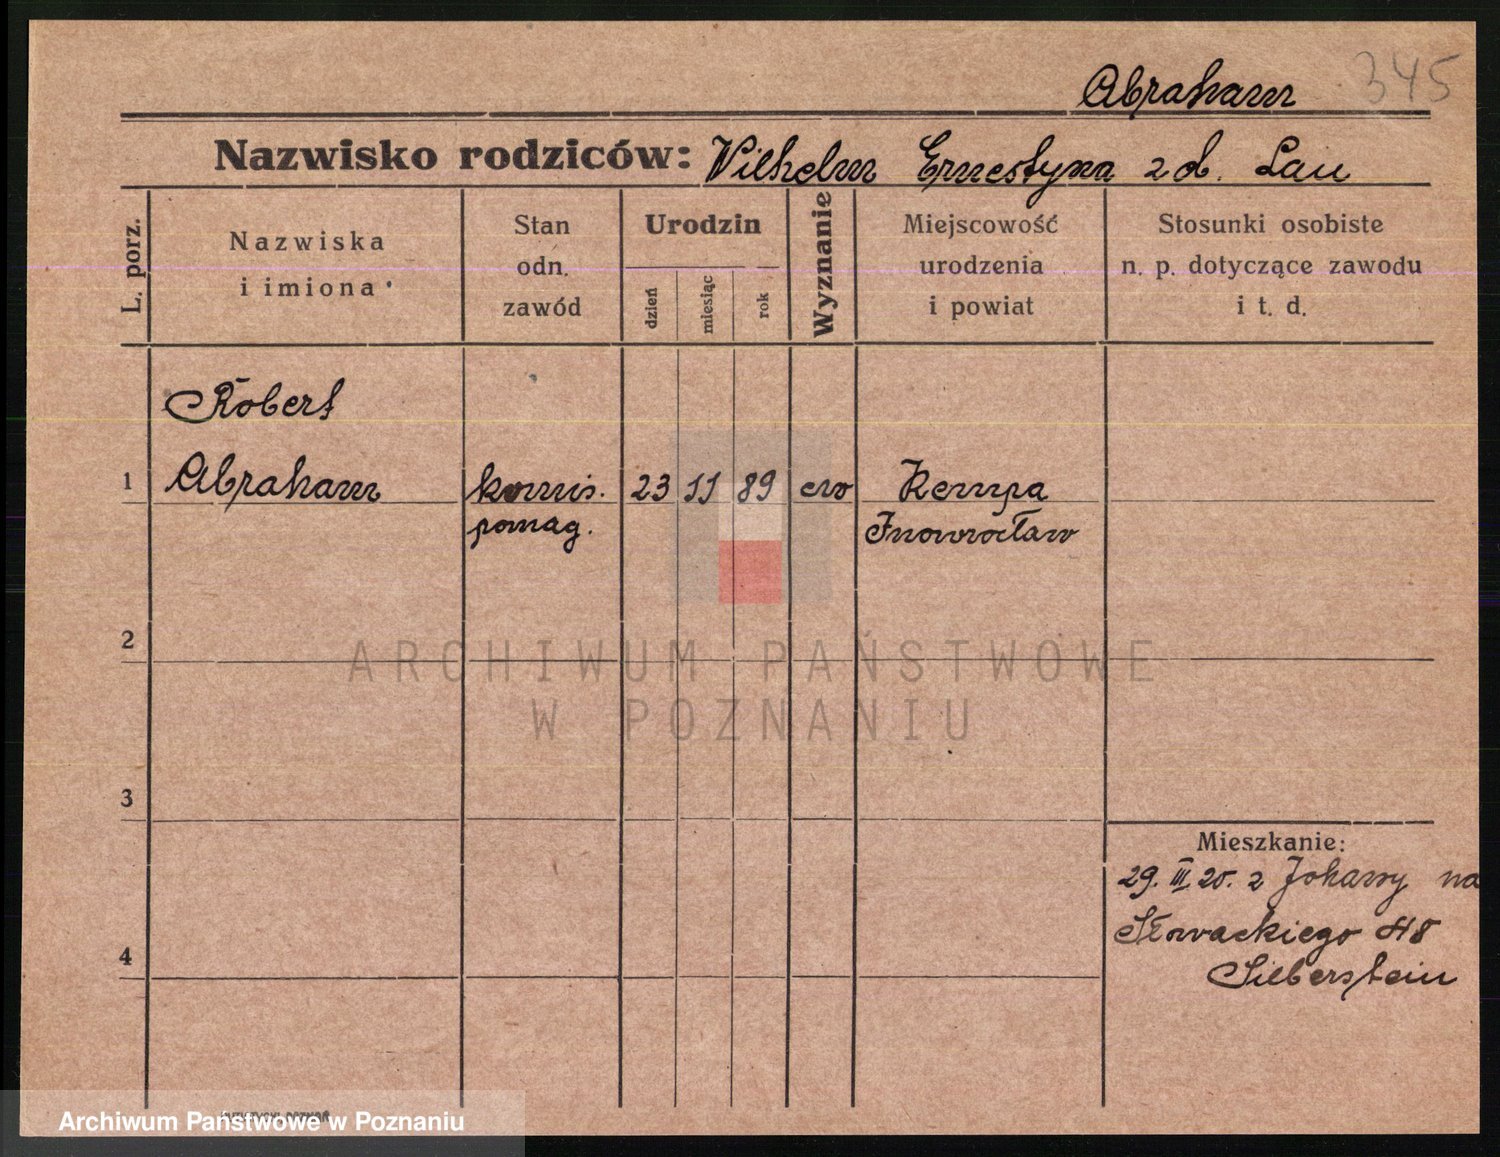 345
Abraham
Nazwisko rodziców: Vilhelm Ernestyna z d. Lau
L. porz.
Nazwiska
i imiona
Stan
odn.
zawód
Urodzin
dzień
miesiąc
rok
Wyznanie
Miejscowość
urodzenia
i powiat
Stosunki osobiste
n. p. dotyczące zawodu
i t. d.
Robert
1 Abraham komis. 23 11 89 ew Kempa
pomag. Inowrocław
2
ARCHIWUM PAŃSTWOWE
W POZNANIU
3
Mieszkanie:
29. III 20. z Johanny na
4 Słowackiego 48
Silberstein
Archiwum Państwowe w Poznaniu